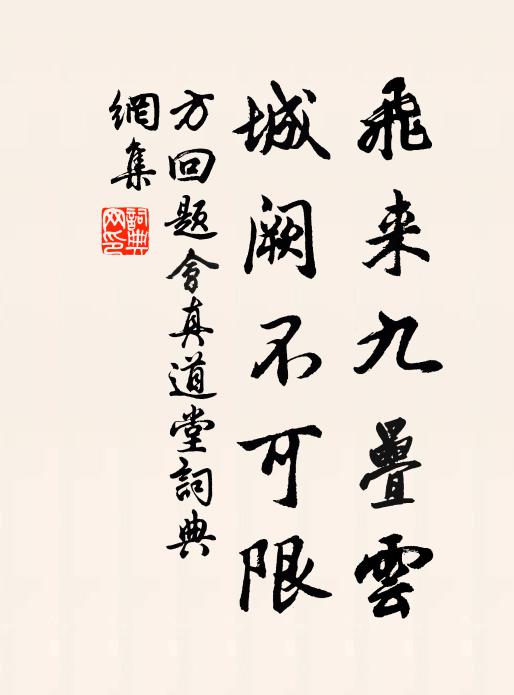 飛来九疊雲
城阙不可限
方回题會真道堂詞典
網集
詞典
网印